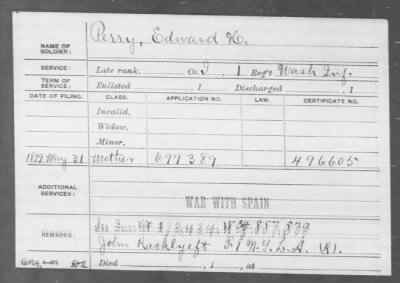 Perry, Edward H.
NAME OF SOLDIER:
SERVICE: Late rank, Co. I, 1 Reg't Wash Inf.
TERM OF SERVICE: Enlisted , 1 Discharged , 1
DATE OF FILING. CLASS. APPLICATION NO. LAW. CERTIFICATE NO.
Invalid,
Widow,
Minor,
1899 May 31 Mother 699389 496605
ADDITIONAL SERVICES:
WAR WITH SPAIN
REMARKS:
John Rachlyeft F. 1 M.
Died , 1 , at